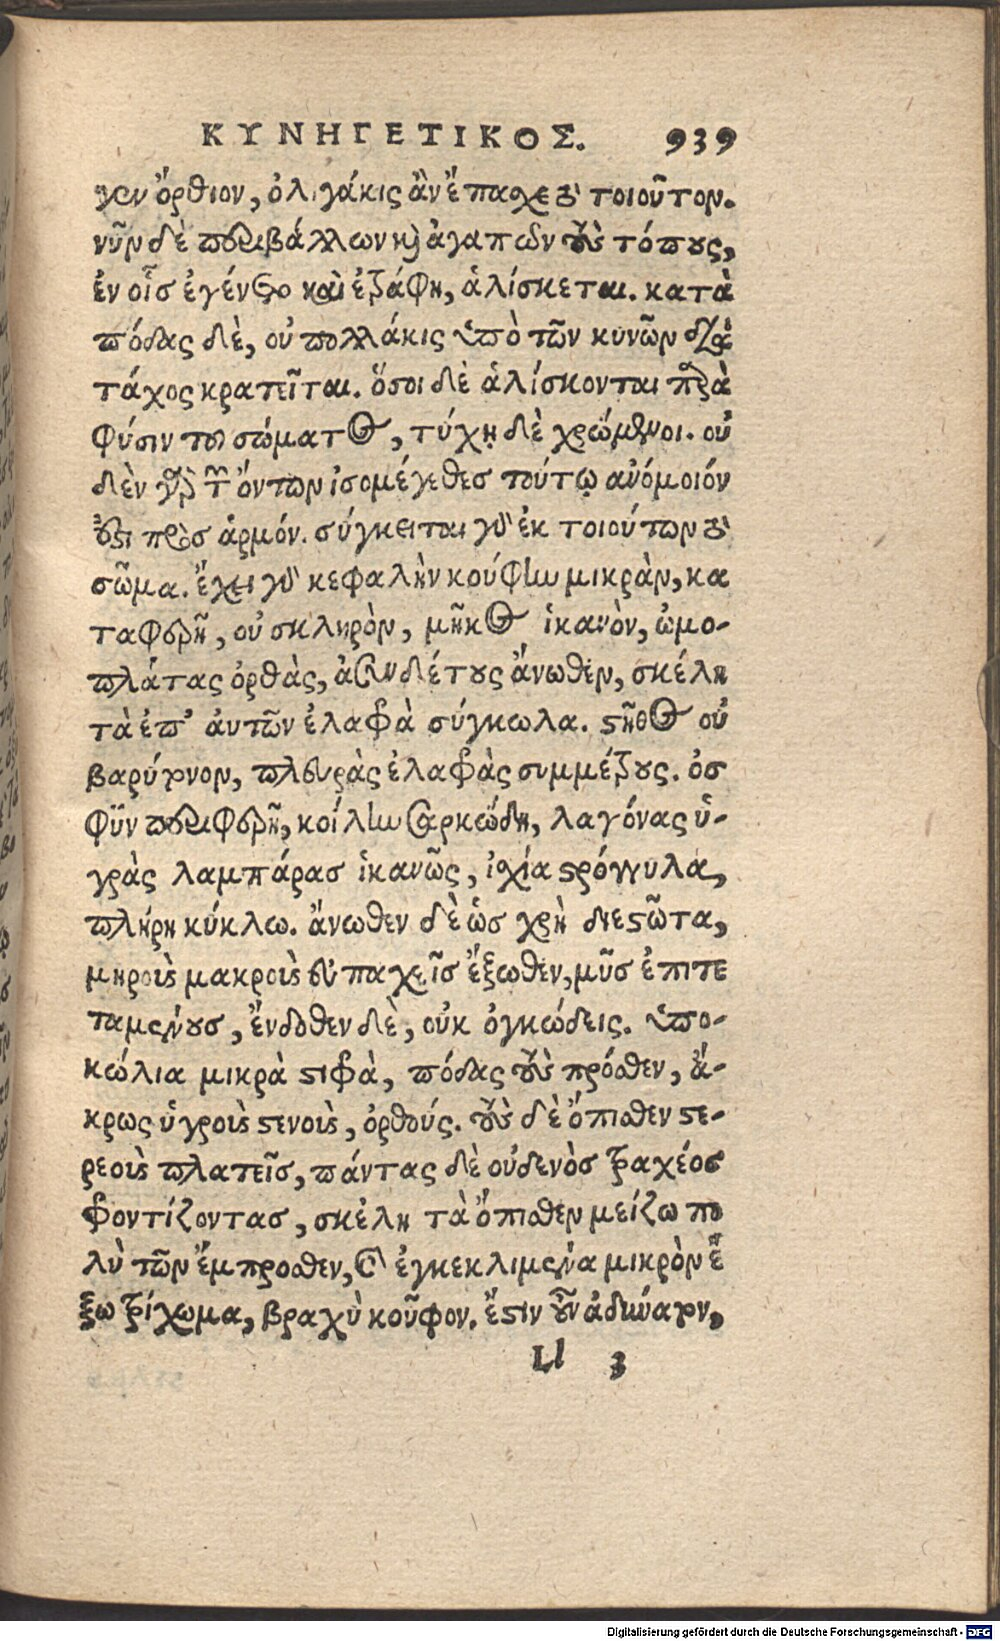 ΚΥΝΗΓΕΤΙΚΟΣ. 939
γεν ὄρθιον, ὀλιγάκις ἂν ἔπασχε τὸ τοιοῦτον.
νῦν δὲ περιβάλλων καὶ ἀγαπῶν τοὺς τόπους,
ἐν οἷς ἐγένετο καὶ ἐτράφη, ἁλίσκεται. κατὰ
πόδας δὲ, οὐ πολλάκις ὑπὸ τῶν κυνῶν διὰ
τάχος κρατεῖται. ὅσοι δὲ ἁλίσκονται παρὰ
φύσιν τοῦ σώματος, τύχῃ δὲ χρώμενοι. οὐ
δὲν γὰρ τῶν ὄντων ἰσομέγεθες τούτῳ ἀνόμοιόν
ἐστι πρὸς ἁρμόν. σύγκειται γὰρ ἐκ τοιούτων τὸ
σῶμα. ἔχει γὰρ κεφαλὴν κούφην μικρὰν, κα
ταφερῆ, οὐ σκληρὸν, μῆκος ἱκανὸν, ὠμο-
πλάτας ὀρθὰς, ἀσυνδέτους ἄνωθεν, σκέλη
τὰ ἐπ' αὐτῶν ἐλαφρὰ σύγκωλα. στῆθος οὐ
βαρύτονον, πλευρὰς ἐλαφρὰς συμμέτρους. ὀσ
φῢν περιφερῆ, κοίλην σαρκώδη, λαγόνας ὑ-
γρὰς λαμπάρας ἱκανῶς, ἰσχία στρόγγυλα,
πλήρη κύκλω. ἄνωθεν δὲ ὡς χρὴ διεστῶτα,
μηροὺς μακροὺς εὐπαχεῖς ἔξωθεν, μῦς ἐπιτε
ταμένους, ἔνδοθεν δὲ, οὐκ ὀγκώδεις. ὑπο-
κώλια μικρὰ στιφρὰ, πόδας τοὺς πρόσθεν, ἄ-
κρως ὑγροὺς στενοὺς, ὀρθούς. τοὺς δὲ ὄπισθεν στε-
ρεοὺς πλατεῖς, πάντας δὲ οὐδενὸς τραχέος
φροντίζοντας, σκέλη τὰ ὄπισθεν μείζω πο
λὺ τῶν ἔμπροσθεν, καὶ ἐγκεκλιμένα μικρὸν ἔ
ξω τρίχωμα, βραχὺ κοῦφον. ἔστιν οὖν ἀδύνατον,
Ll 3